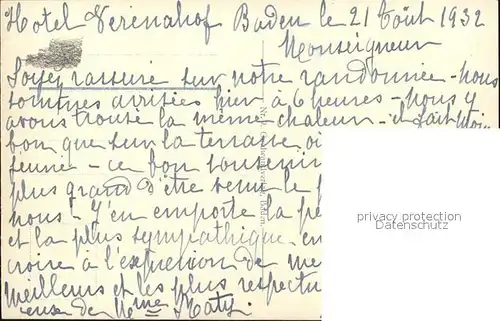 Hotel Verenahof Baden le 21 Août 1932
Monseigneur
Soyez rassuré sur notre randonnée - nous
sommes arrivées hier à 6 heures - nous y
avons trouvé la même chaleur - il fait moi
bon que sur la terrasse où
- ce bon souvenir
plus grand d'être venu le
nous! J'en emporte la
et la plus sympathique - en
croire à l'expression de me
meilleurs et les plus respectu
euse de Mme
privacy protection
Datenschutz